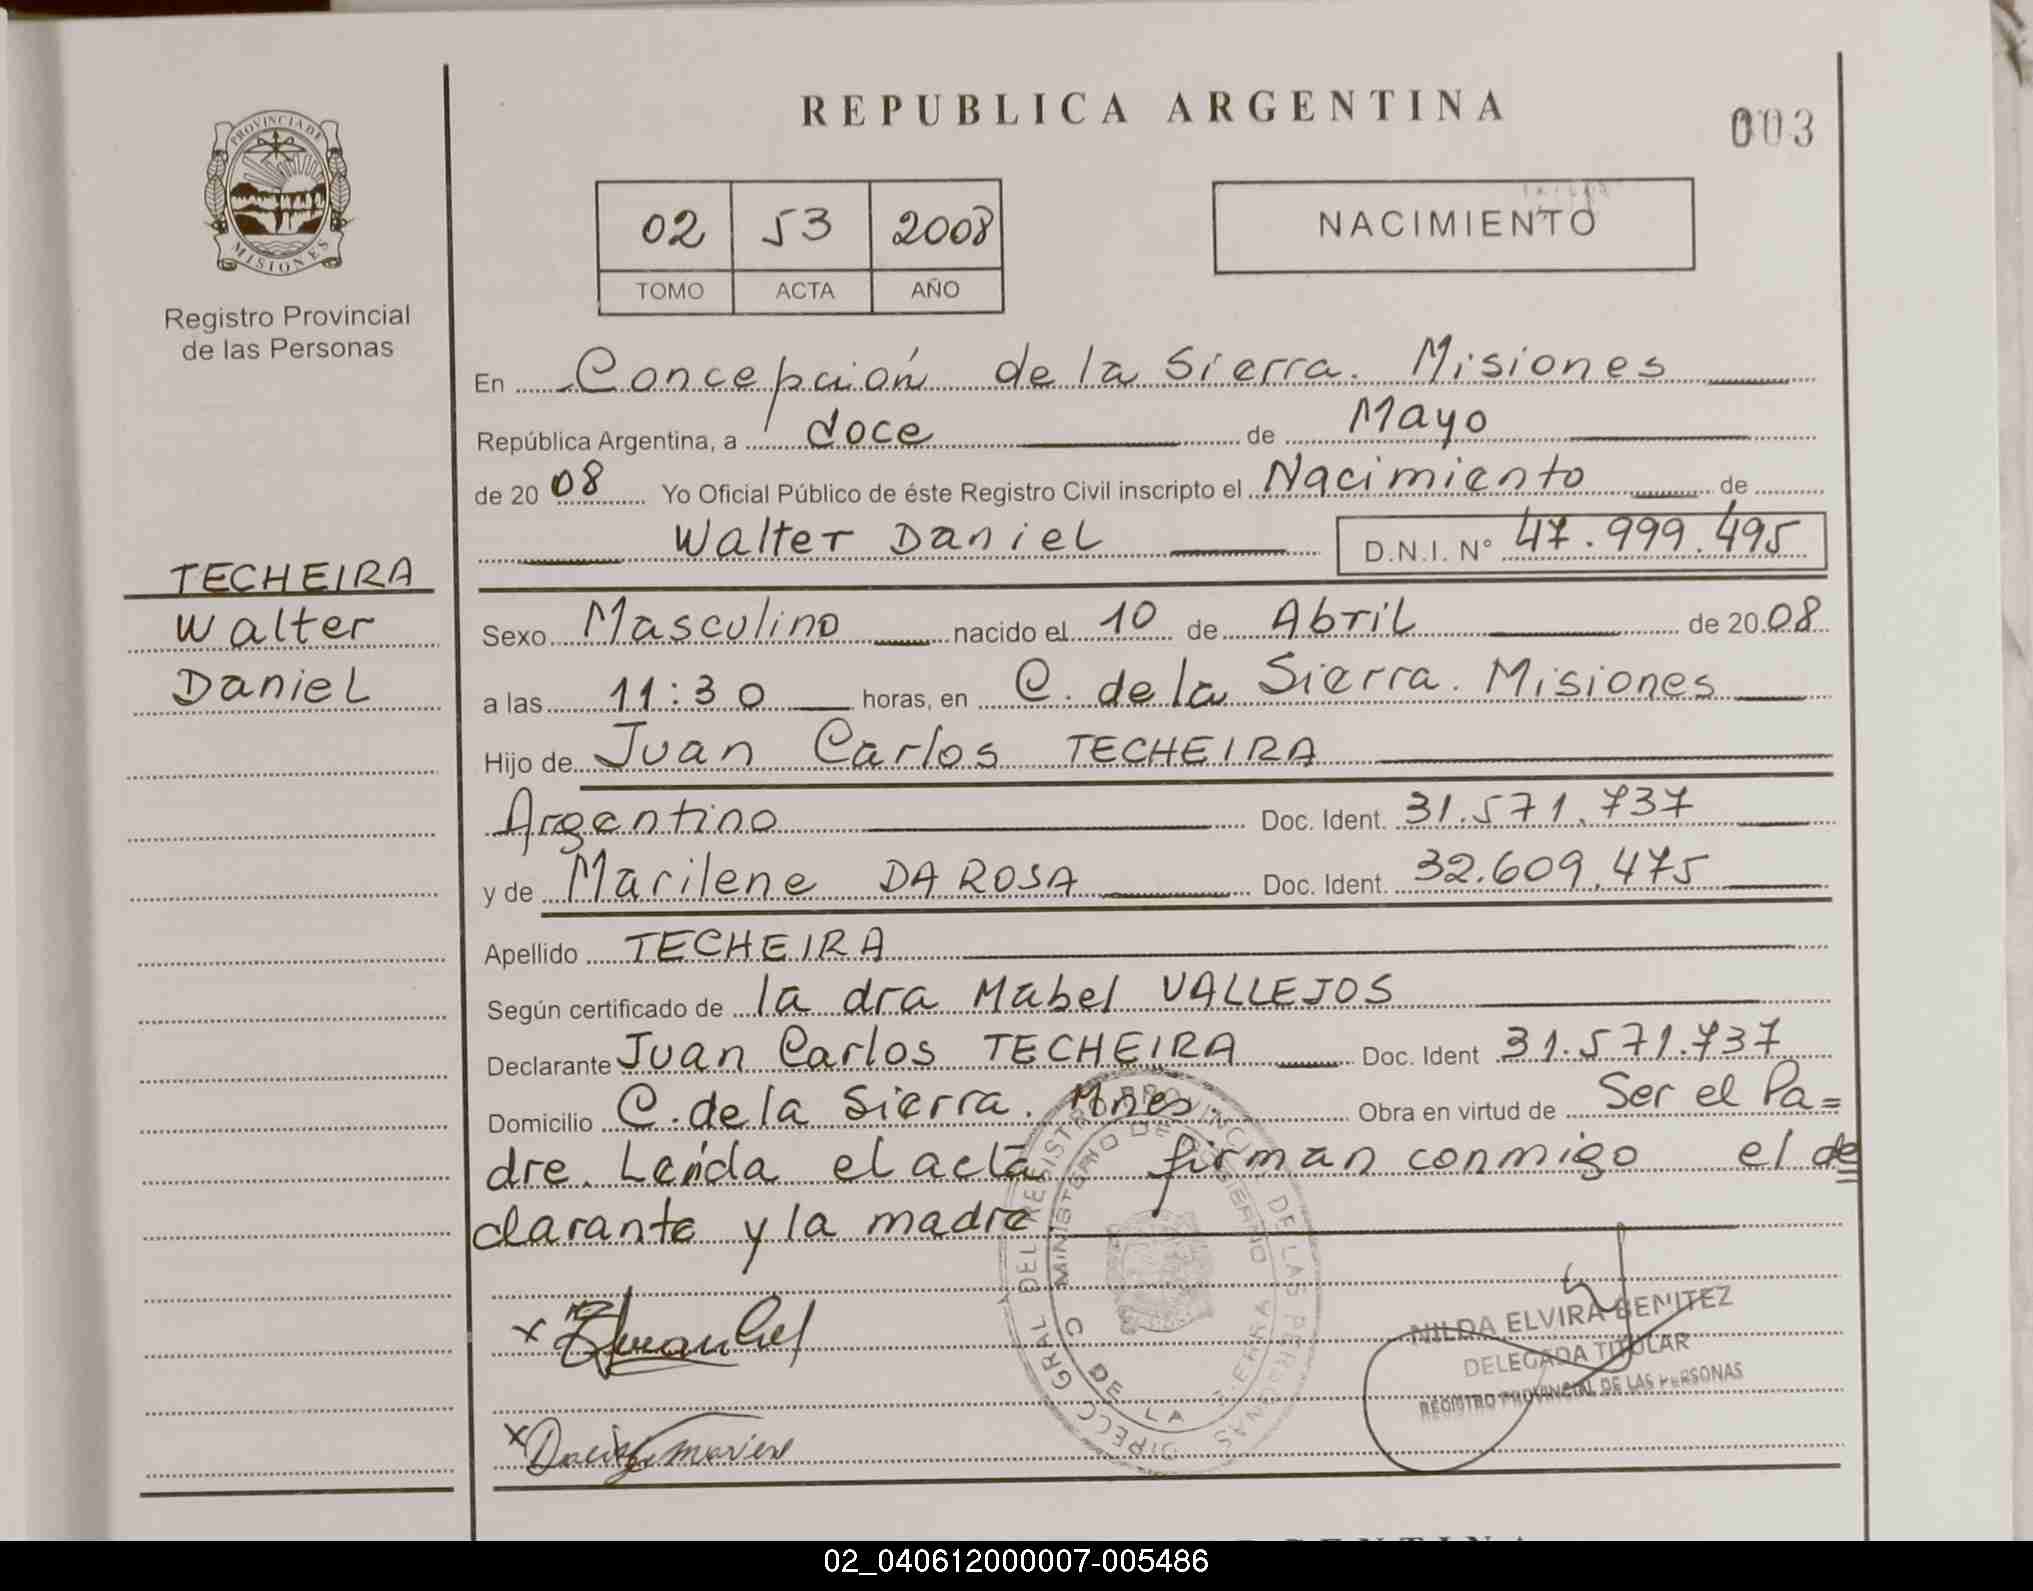 REPUBLICA ARGENTINA
003
PROVINCIA DE
MISIONES
Registro Provincial
de las Personas
02 53 2008
TOMO ACTA AÑO
NACIMIENTO
En Concepción de la Sierra. Misiones
República Argentina, a doce de Mayo
de 2008 Yo Oficial Público de éste Registro Civil inscripto el Nacimiento de
Walter Daniel D.N.I. N° 47.999.495
TECHEIRA
Walter
Daniel
Sexo Masculino nacido el 10 de Abril de 2008
a las 11:30 horas, en C. de la Sierra. Misiones
Hijo de Juan Carlos TECHEIRA
Argentino Doc. Ident. 31.571.737
y de Marilene DA ROSA Doc. Ident. 32.609.475
Apellido TECHEIRA
Según certificado de la dra Mabel VALLEJOS
Declarante Juan Carlos TECHEIRA Doc. Ident 31.571.737
Domicilio C. de la Sierra. Mnes. Obra en virtud de Ser el Pa=
dre. Leída el acta firman conmigo el de=
clarante y la madre
NILDA ELVIRA BENITEZ
DELEGADA TITULAR
REGISTRO PROVINCIAL DE LAS PERSONAS
02_040612000007-005486